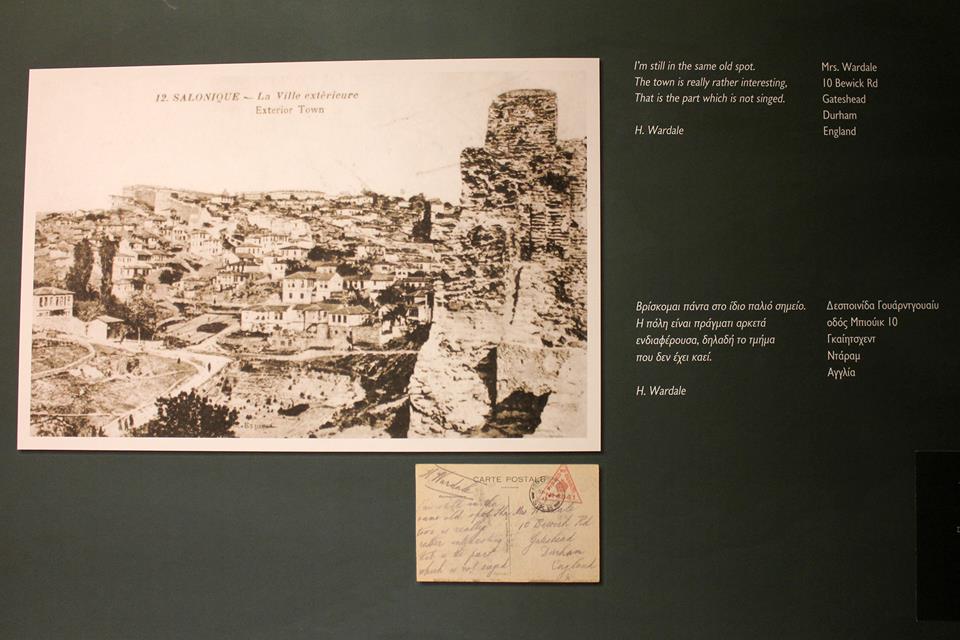 12. SALONIQUE – La Ville extérieure
Exterior Town
I'm still in the same old spot.
The town is really rather interesting,
That is the part which is not singed.
H. Wardale
Mrs. Wardale
10 Bewick Rd
Gateshead
Durham
England
Βρίσκομαι πάντα στο ίδιο παλιό σημείο.
Η πόλη είναι πράγματι αρκετά
ενδιαφέρουσα, δηλαδή το τμήμα
που δεν έχει καεί.
H. Wardale
Δεσποινίδα Γουάρντγουαίυ
οδός Μπιούικ 10
Γκαίητσχεντ
Ντάραμ
Αγγλία
CARTE POSTALE
H Wardale
I'm still in the
same old spot. The
town is really
rather interesting
that is the part
which is not singed
Mrs Wardale
10 Bewick Rd
Gateshead
Durham
England